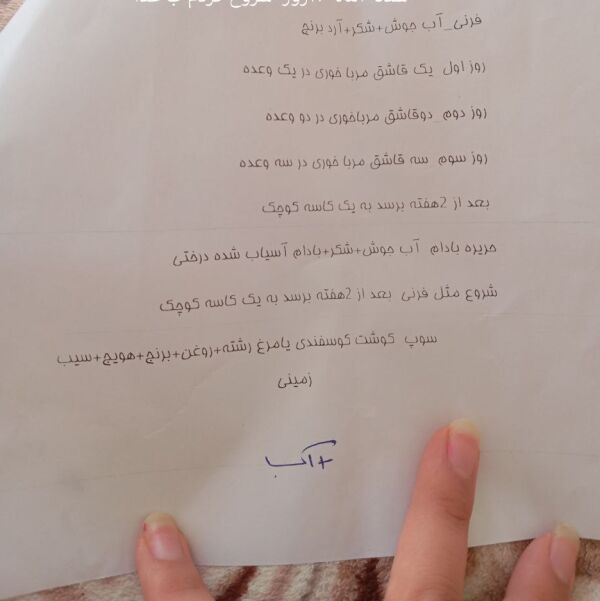 فرنی_آب جوش+شکر+آرد برنج
روز اول یک قاشق مربا خوری در یک وعده
روز دوم_دوقاشق مرباخوری در دو وعده
روز سوم سه قاشق مربا خوری در سه وعده
بعد از 2هفته برسد به یک کاسه کوچک
حریره بادام آب جوش+شکر+بادام آسیاب شده درختی
شروع مثل فرنی بعد از 2هفته برسد به یک کاسه کوچک
سوپ گوشت گوسفندی یامرغ رشته+روغن+برنج+هویج+سیب
زمینی
+آب